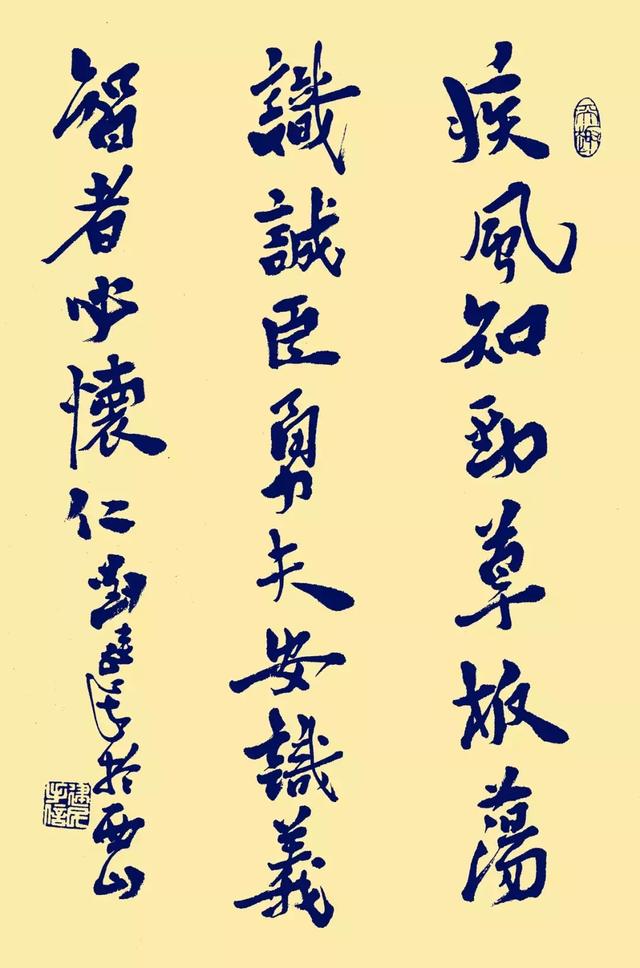 疾風知勁草板蕩
識誠臣勇夫安識義
智者必懷仁 於西山